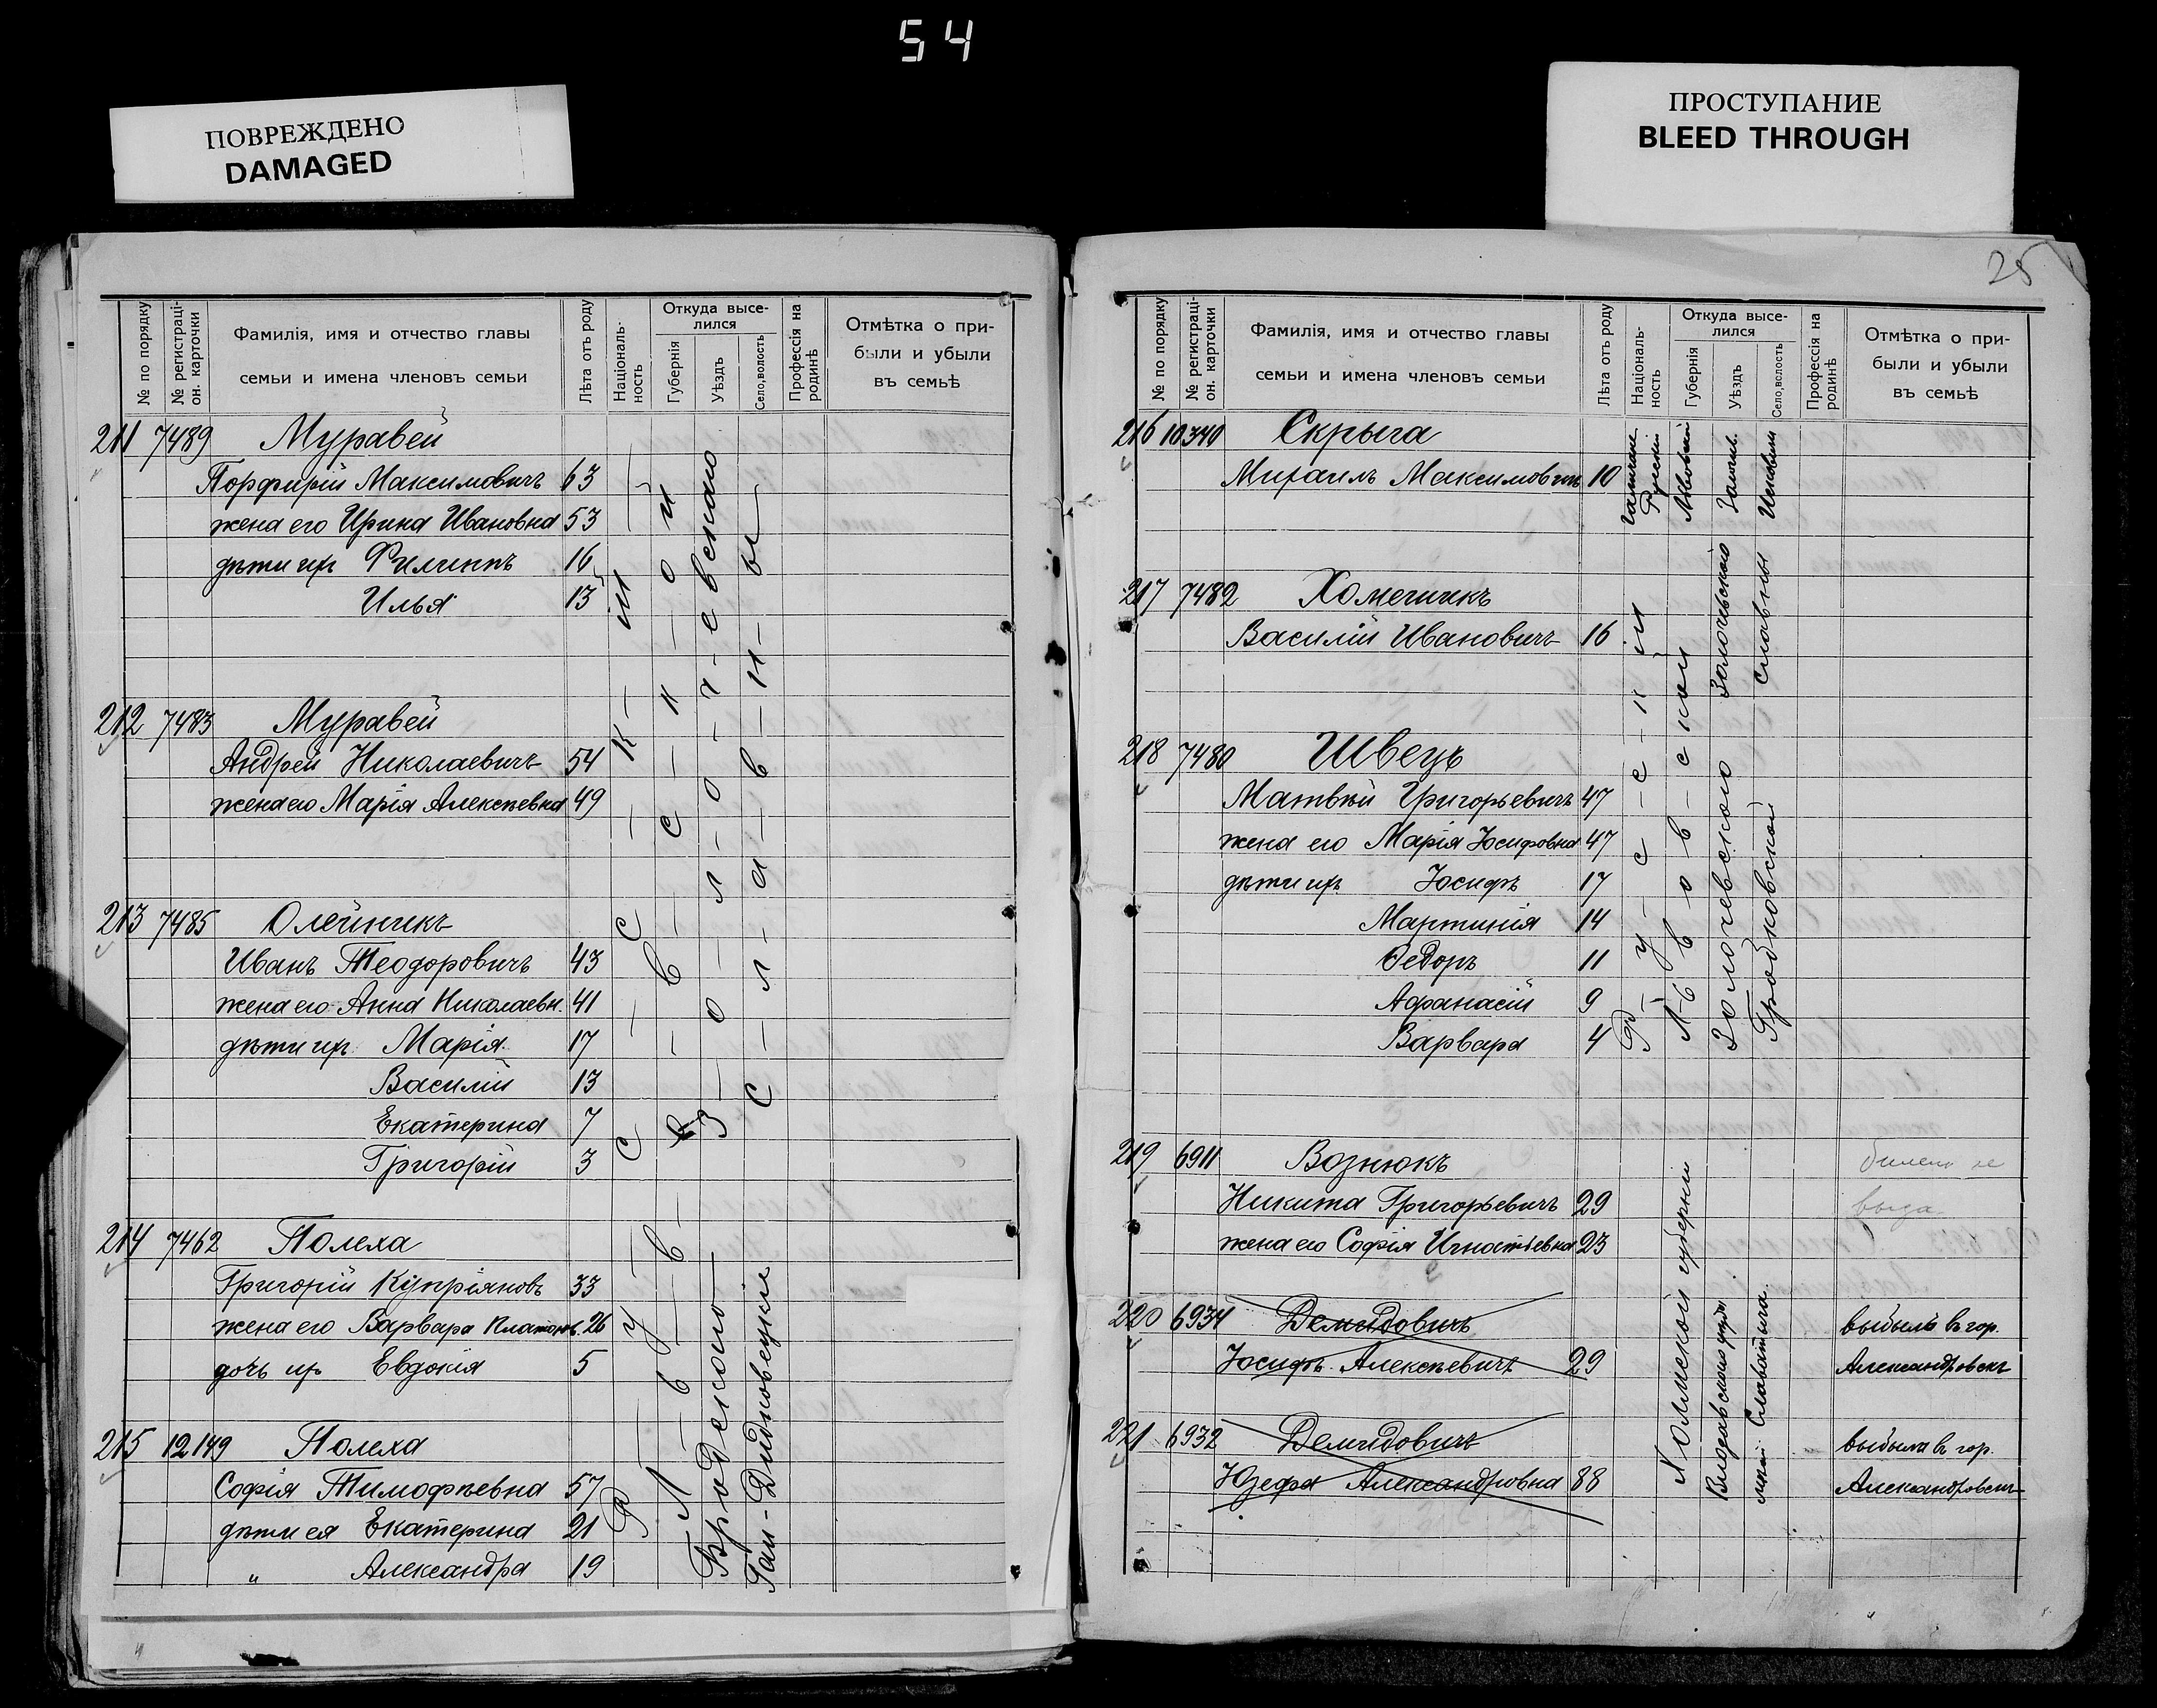 54
ПОВРЕЖДЕНО
DAMAGED
ПРОСТУПАНИЕ
BLEED THROUGH
№ по порядку
№ регистраці-
он. карточки
Фамилія, имя и отчество главы
семьи и имена членовъ семьи
Лѣта отъ роду
Національ-
ность
Откуда высе-
лился
Губернія
Уѣздъ
Село, волость
Профессія на
родинѣ
Отмѣтка о при-
были и убыли
въ семьѣ
211 7489 Муравей
Порфирій Максимовичъ 63
жена его Ирина Ивановна 53
дѣти ихъ Филиппъ 16
Илья 13
212 7483 Муравей
Андрей Николаевичъ 54
жена его Марія Алексѣевна 49
213 7485 Олейникъ
Иванъ Теодоровичъ 43
жена его Анна Николаевн. 41
дѣти ихъ Марія 17
Василій 13
Екатерина 7
Григорій 3
214 7462 Полеха
Григорій Купріяновъ 33
жена его Варвара Платонов. 26
дочь ихъ Евдокія 5
215 12149 Полеха
Софія Тимофѣевна 57
дѣти ея Екатерина 21
" Александра 19
Русскій
Львовской
Золочевскаго
Бродскаго
25
№ по порядку
№ регистраці-
он. карточки
Фамилія, имя и отчество главы
семьи и имена членовъ семьи
Лѣта отъ роду
Національ-
ность
Откуда высе-
лился
Губернія
Уѣздъ
Село, волость
Профессія на
родинѣ
Отмѣтка о при-
были и убыли
въ семьѣ
216 10340 Скрыга
Михаилъ Максимовичъ 10
Русскій
Львовской
217 7482 Хомечикъ
Василій Ивановичъ 16
218 7480 Швецъ
Матвѣй Григорьевичъ 47
жена его Марія Іосифовна 47
дѣти ихъ Іосифъ 17
Мартинія 14
Ѳедоръ 11
Афанасій 9
Варвара 4
Русскій
Львовской
Золочевскаго
219 6911 Вознюкъ
Никита Григорьевичъ 29
жена его Софія Игнатьевна 23
220 6934 Демидовичъ
Іосифъ Алексѣевичъ 29
выбылъ въ гор.
Александровскъ
221 6932 Демидовичъ
Юзефа Александровна 88
выбыла въ гор.
Александровскъ
Холмской губерніи